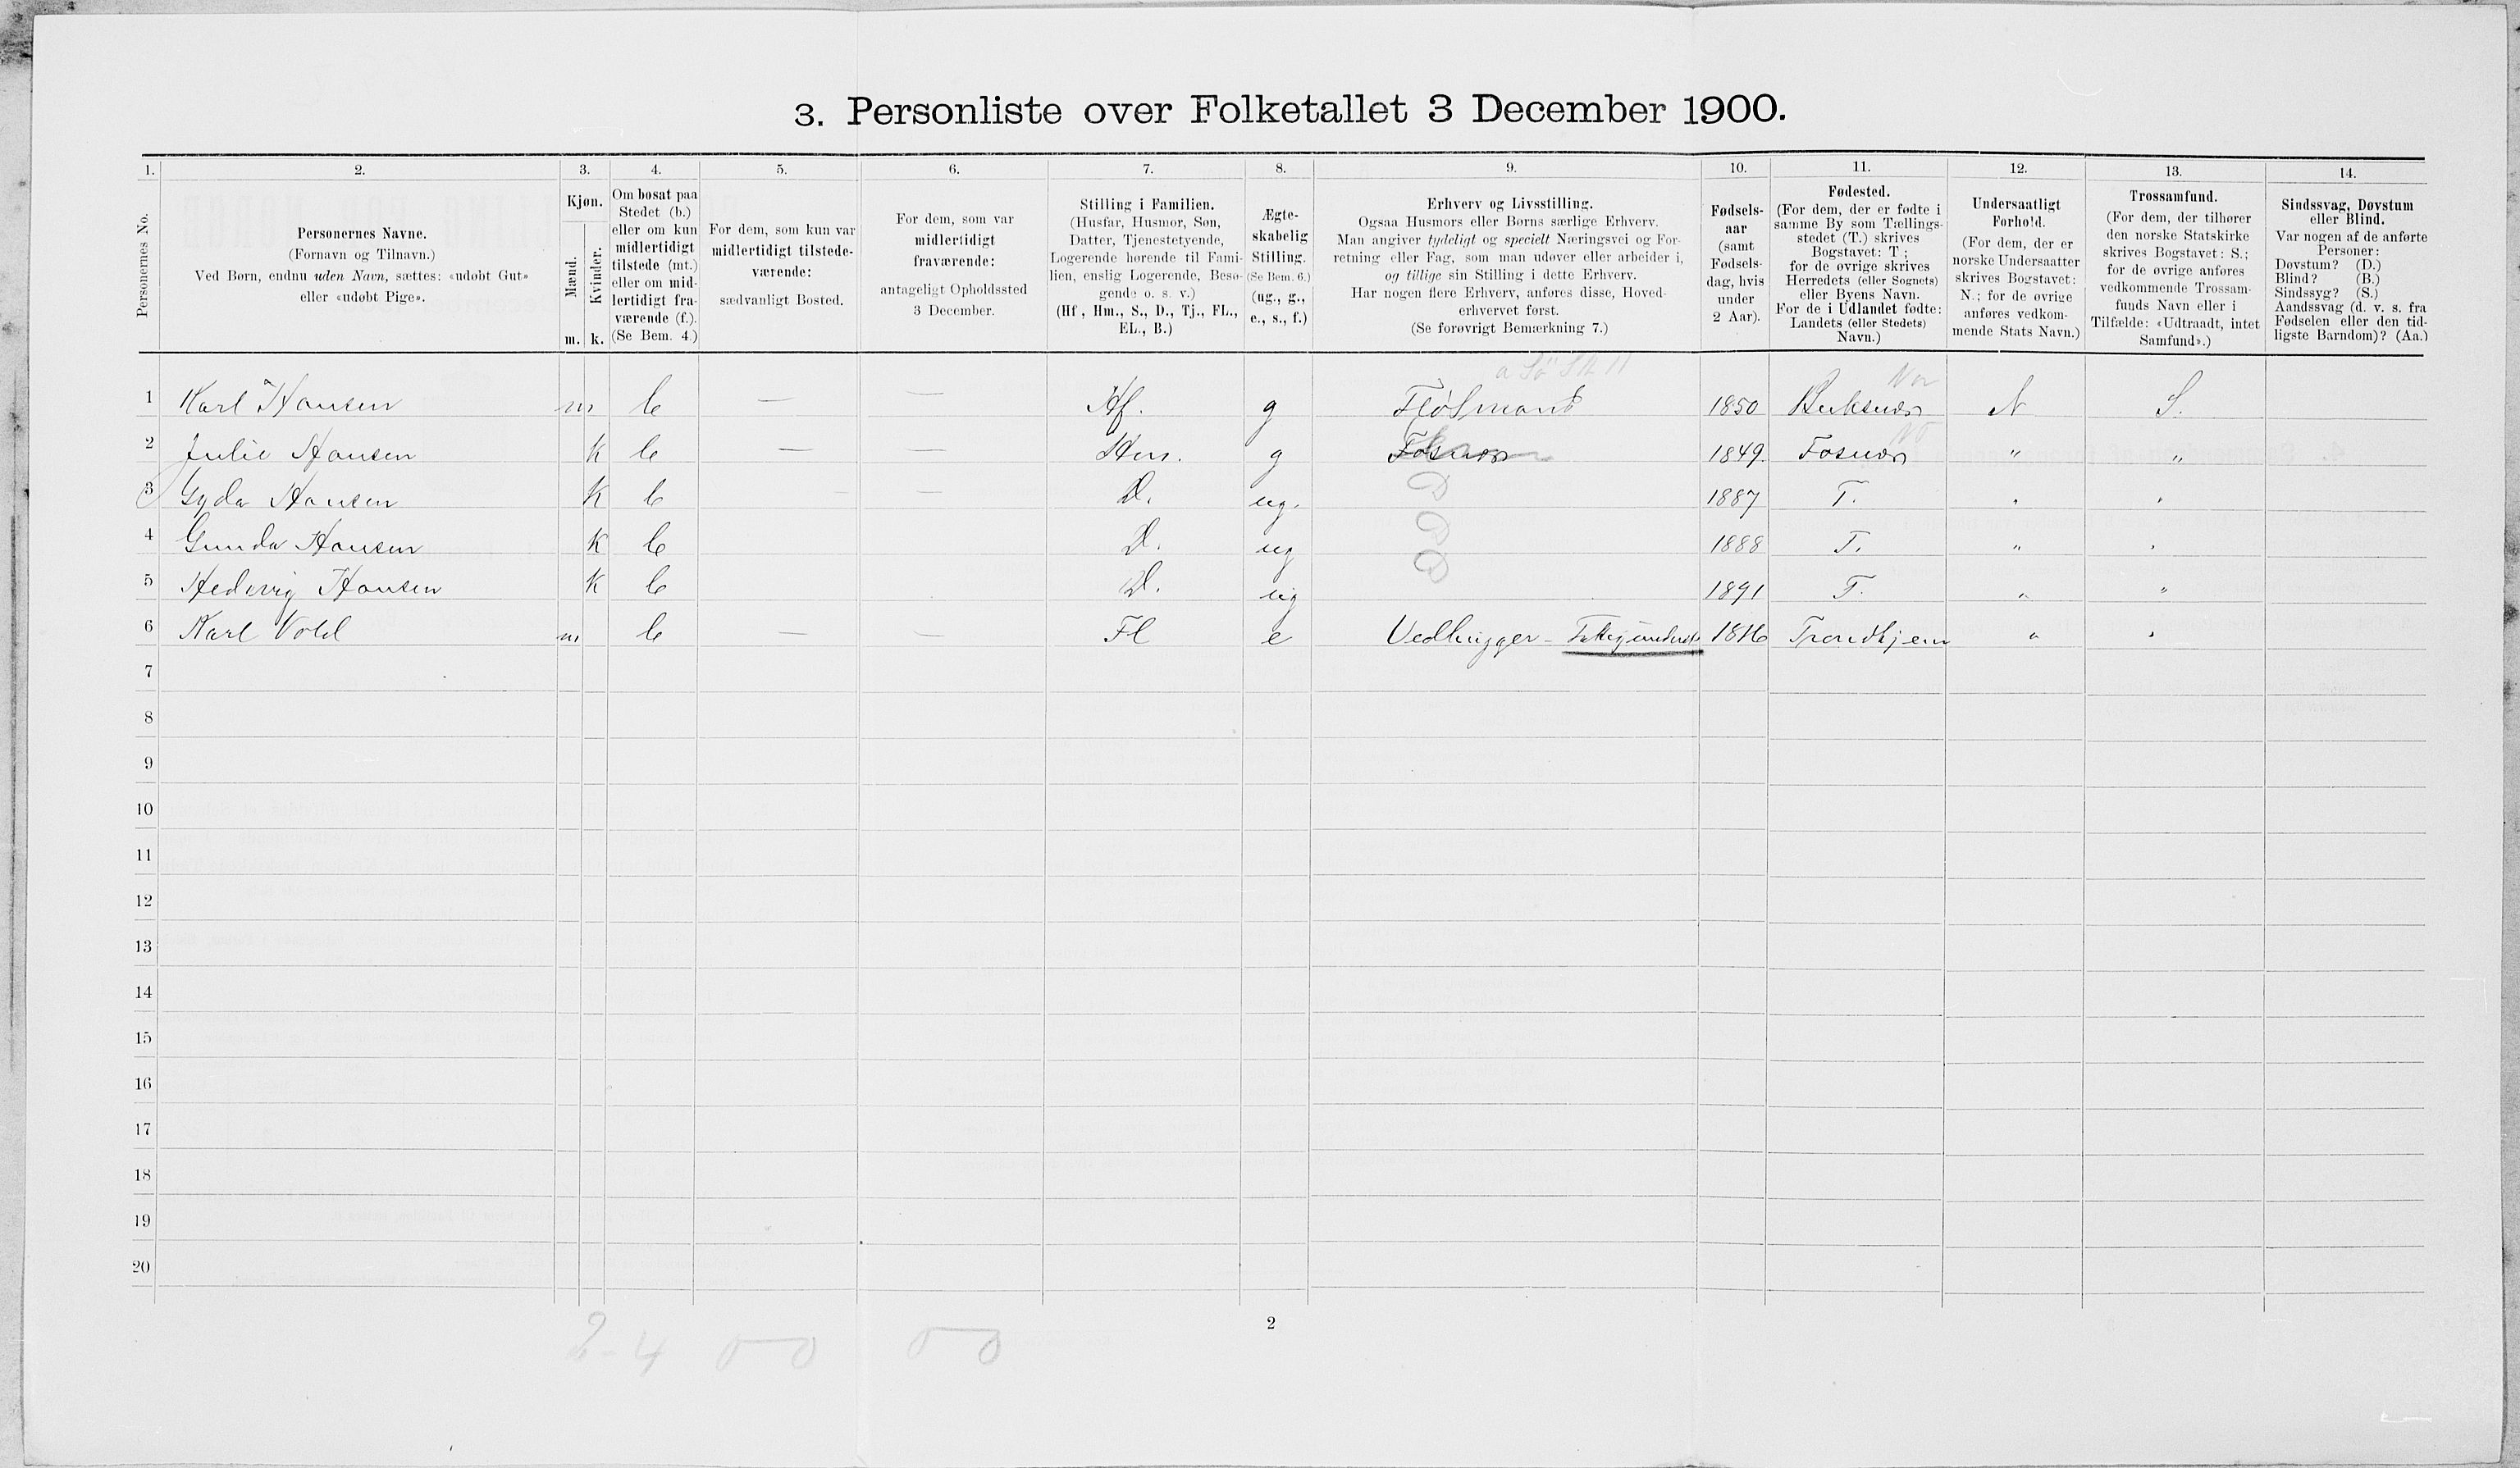 3. Personliste over Folketallet 3 December 1900.
1. 2. 3. 4. 5. 6. 7. 8. 9. 10. 11. 12. 13. 14.
Personernes No.
Personernes Navne.
(Fornavn og Tilnavn.)
Ved Børn, endnu uden Navn, sættes: «udøbt Gut»
eller «udøbt Pige».
Kjøn.
Mænd.
Kvinder.
m. k.
Om bosat paa
Stedet (b.)
eller om kun
midlertidigt
tilstede (mt.)
eller om mid-
lertidigt fra-
værende (f.).
(Se Bem. 4.)
For dem, som kun var
midlertidigt tilstede-
værende:
sædvanligt Bosted.
For dem, som var
midlertidigt
fraværende:
antageligt Opholdssted
3 December.
Stilling i Familien.
(Husfar, Husmor, Søn,
Datter, Tjenestetyende,
Logerende hørende til Fami-
lien, enslig Logerende, Besø-
gende o. s. v.)
(Hf., Hm., S., D., Tj., FL.,
EL., B.)
Ægte-
skabelig
Stilling.
(Se Bem. 6.)
(ug., g.,
e., s., f.)
Erhverv og Livsstilling.
Ogsaa Husmors eller Børns særlige Erhverv.
Man angiver tydeligt og specielt Næringsvei og For-
retning eller Fag, som man udøver eller arbeider i,
og tillige sin Stilling i dette Erhverv.
Har nogen flere Erhverv, anføres disse, Hoved-
erhvervet først.
(Se forøvrigt Bemærkning 7.)
Fødsels-
aar
(samt
Fødsels-
dag, hvis
under
2 Aar).
Fødested.
(For dem, der er fødte i
samme By som Tællings-
stedet (T.) skrives
Bogstavet: T.;
for de øvrige skrives
Herredets (eller Sognets)
eller Byens Navn.
For de i Udlandet fødte:
Landets (eller Stedets)
Navn.)
Undersaatligt
Forhold.
(For dem, der er
norske Undersaatter
skrives Bogstavet:
N.; for de øvrige
anføres vedkom-
mende Stats Navn.)
Trossamfund.
(For dem, der tilhører
den norske Statskirke
skrives Bogstavet: S.;
for de øvrige anføres
vedkommende Trossam-
funds Navn eller i
Tilfælde: «Udtraadt, intet
Samfund».)
Sindssvag, Døvstum
eller Blind.
Var nogen af de anførte
Personer:
Døvstum? (D.)
Blind? (B.)
Sindssyg? (S.)
Aandssvag (d. v. s. fra
Fødselen eller den tid-
ligste Barndom)? (Aa.)
1 Karl Hansen m b — — Hf. g 1850 Buksnæs N S.
2 Julie Hansen k b — — Hm. g Fosnæs 1849. Fosnæs " "
3 Gyda Hansen k b — — D. ug. 1887 T. " "
4 Gunda Hansen k b D. ug 1888 T. " "
5 Hedevig Hansen k b D. ug 1891 T. " "
6 Karl Vold m b — — Fl e Vedhugger - 1816 Trondhjem " "
7
8
9
10
11
12
13
14
15
16
17
18
19
20
2
2-4 0 0 0 0